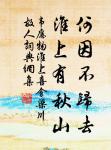 何因不歸去
淮上有秋山
韋應物淮上喜會梁川
故人詞典網集